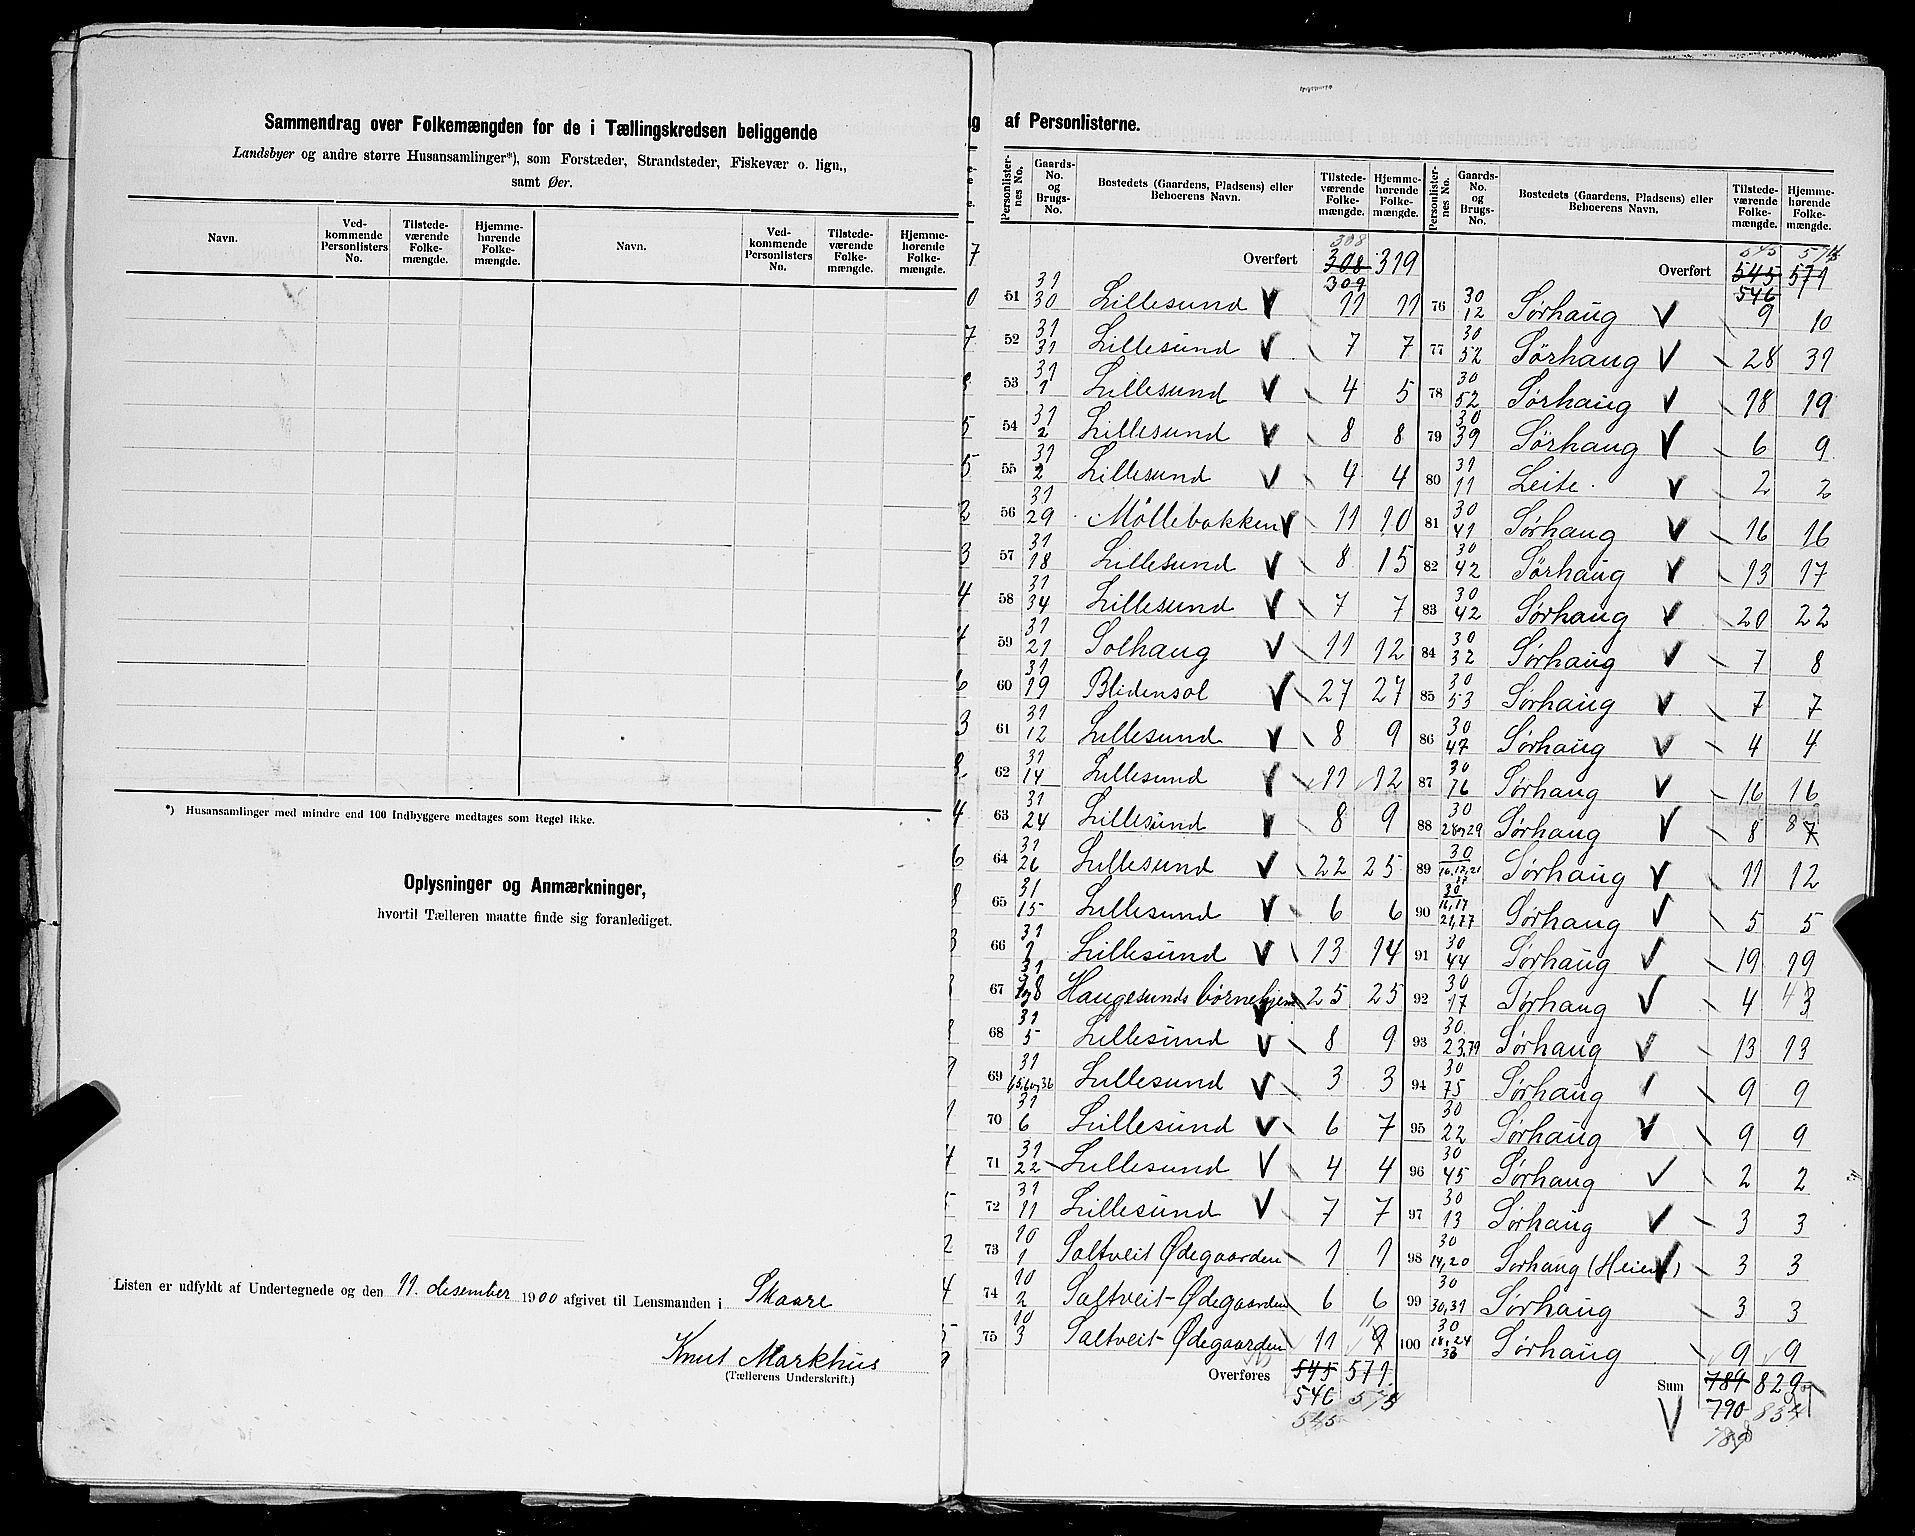 Sammendrag over Folkemængden for de i Tællingskredsen beliggende
Landsbyer og andre større Husansamlinger*), som Forstæder, Strandsteder, Fiskevær o. lign.,
samt Øer.
Navn. Ved-kommende Personlisters No. Tilstede-værende Folke-mængde. Hjemme-hørende Folke-mængde. Navn. Ved-kommende Personlisters No. Tilstede-værende Folke-mængde. Hjemme-hørende Folke-mængde.
*) Husansamlinger med mindre end 100 Indbyggere medtages som Regel ikke.
Oplysninger og Anmærkninger,
hvortil Tælleren maatte finde sig foranlediget.
Listen er udfyldt af Undertegnede og den 11. desember 1900 afgivet til Lensmanden i Skaare
Knut Markhus
(Tællerens Underskrift.)
af Personlisterne.
Personlister-nes No. Gaards-No. og Brugs-No. Bostedets (Gaardens, Pladsens) eller Beboerens Navn. Tilstede-værende Folke-mængde. Hjemme-hørende Folke-mængde.
308
Overført 308 319
309
51 31 30 Lillesund V 11 11
52 31 31 Lillesund V 7 7
53 31 1 Lillesund V 4 5
54 31 2 Lillesund V 8 8
55 31 2 Lillesund V 4 4
56 31 29 Møllebakken V 11 10
57 31 18 Lillesund V 8 15
58 31 34 Lillesund V 7 7
59 31 21 Solhaug V 11 12
60 31 19 Blidensol V 27 27
61 31 12 Lillesund V 8 9
62 31 14 Lillesund V 11 12
63 31 24 Lillesund V 8 9
64 31 26 Lillesund V 22 25
65 31 15 Lillesund V 6 6
66 31 1 Lillesund V 13 14
67 31 Haugesunds børnehjem V 25 25
68 31 5 Lillesund V 8 9
69 31 Lillesund V 3 3
70 31 6 Lillesund V 6 7
71 31 22 Lillesund V 4 4
72 31 11 Lillesund V 7 7
73 10 1 Saltveit Ødegaarden 1 1
74 10 2 Saltveit-Ødegaarden 6 6
75 10 3 Saltveit-Ødegaarden 11 9
Overføres 545 571
546 574
545
Personlister-nes No. Gaards-No. og Brugs-No. Bostedets (Gaardens, Pladsens) eller Beboerens Navn. Tilstede-værende Folke-mængde. Hjemme-hørende Folke-mængde.
545 574
Overført 545 571
546
76 30 12 Sørhaug V 9 10
77 30 52 Sørhaug V 28 31
78 30 52 Sørhaug V 18 19
79 30 39 Sørhaug V 6 9
80 31 11 Leite. V 2 2
81 30 41 Sørhaug V 16 16
82 30 42 Sørhaug V 13 17
83 30 42 Sørhaug V 20 22
84 30 32 Sørhaug V 7 8
85 30 53 Sørhaug V 7 7
86 30 47 Sørhaug V 4 4
87 30 76 Sørhaug V 16 16
88 30 28og29 Sørhaug V 8 8 7
89 30 16,17,21 27 Sørhaug V 11 12
90 30 16,17 21,27 Sørhaug V 5 5
91 30 44 Sørhaug V 19 19
92 30 17 Sørhaug V 4 4 3
93 30 23,79 Sørhaug V 13 13
94 30 75 Sørhaug 9 9
95 30 22 Sørhaug V 9 9
96 30 45 Sørhaug V 2 2
97 30 13 Sørhaug V 3 3
98 30 14,20 Sørhaug (Heien) V 3 3
99 30 30,31 Sørhaug 3 3
100 30 18,24 36 Sørhaug 9 9
Sum 789 829
V 790 834
789